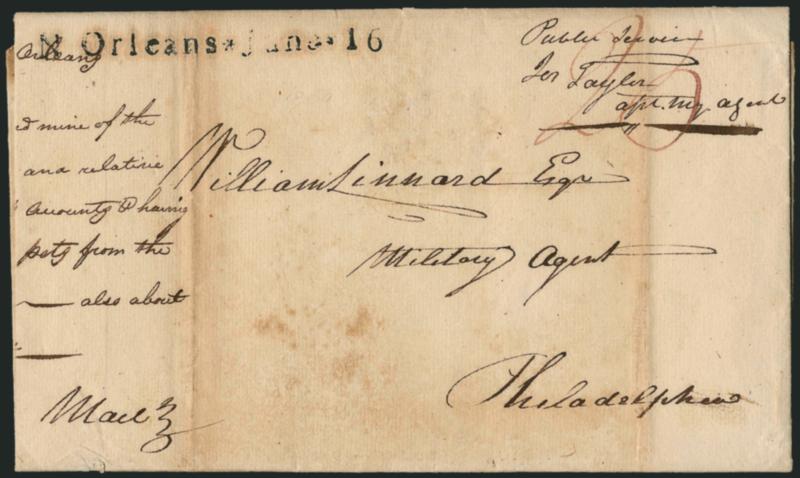 N. Orleans * June * 16
Orleans
ed mine of the
and relative
accounts & having
pets from the
also about
Mail
Public Service
Jos Taylor
apt. my agent
25
William Linnard Esqr
Military Agent
Philadelphia